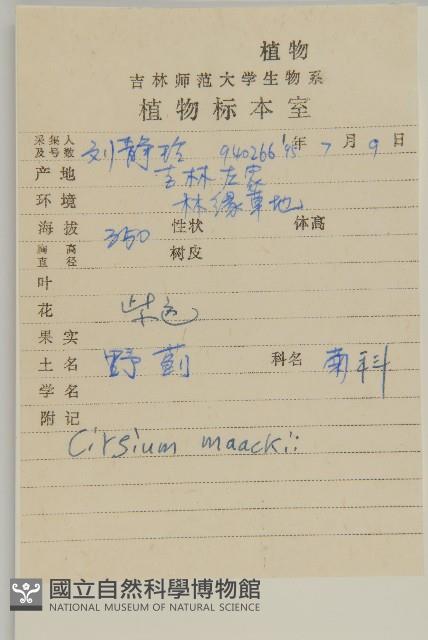 植物
吉林师范大学生物系
植物标本室
采集人及号数 刘静玲 940266 '95年 7月 9日
产地 吉林左家
环境 林缘草地
海拔 350 性状 体高
胸高直径 树皮
叶
花 柴色
果实
土名 野蓟 科名 菊科
学名
附记
Cirsium maackii
國立自然科學博物館
NATIONAL MUSEUM OF NATURAL SCIENCE